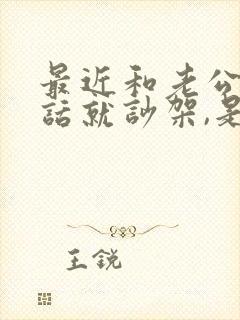 最近和老公
話就訬架,是
王锐